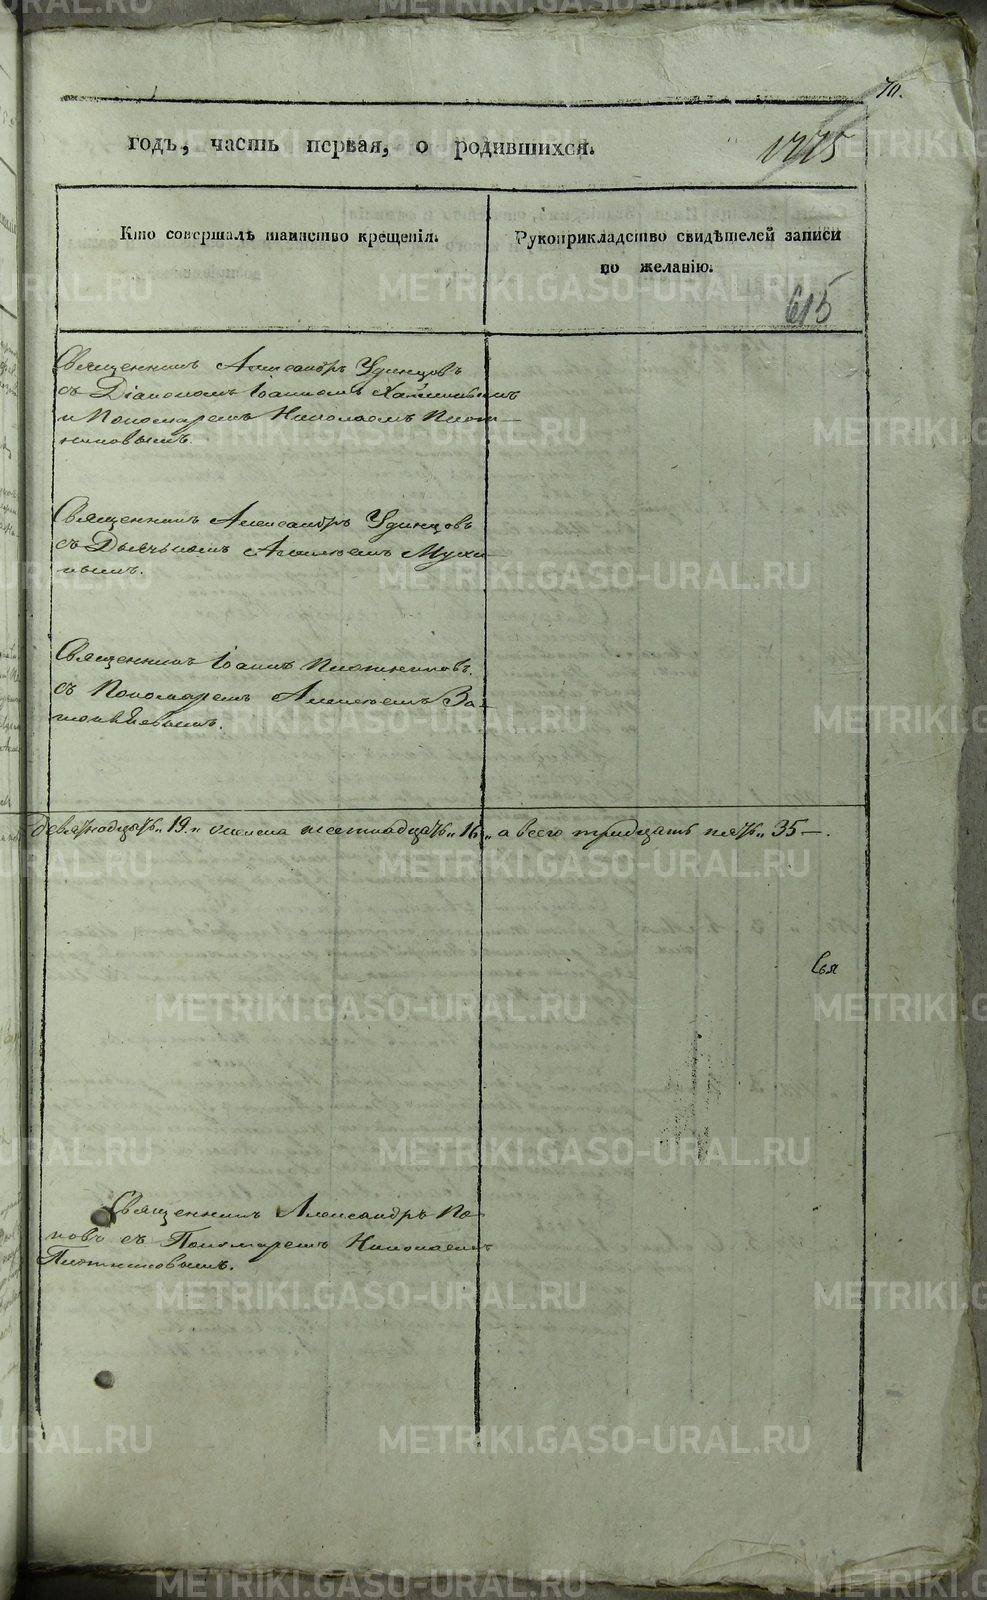 70.
годъ, часть первая, о родившихся.
1775
Кто совершалъ таинство крещенія.
Рукоприкладство свидѣтелей записи
по желанію.
615
Священникъ Александръ Удинцовъ
съ Діакономъ Іоанномъ
и Пономаремъ Николаемъ Плот-
никовымъ.
Священникъ Александръ Удинцовъ
съ Дьячкомъ Алексѣемъ Мухи-
нымъ.
Священникъ Іоаннъ Плотниковъ.
съ Пономаремъ Алексѣемъ
девятнадцать „19.„ женска шестнадцать „16„ а всего тридцать пять „35—.
Свя
Священникъ Александръ По-
повъ съ Пономаремъ Николаемъ
Плотниковымъ.
METRIKI.GASO-URAL.RU